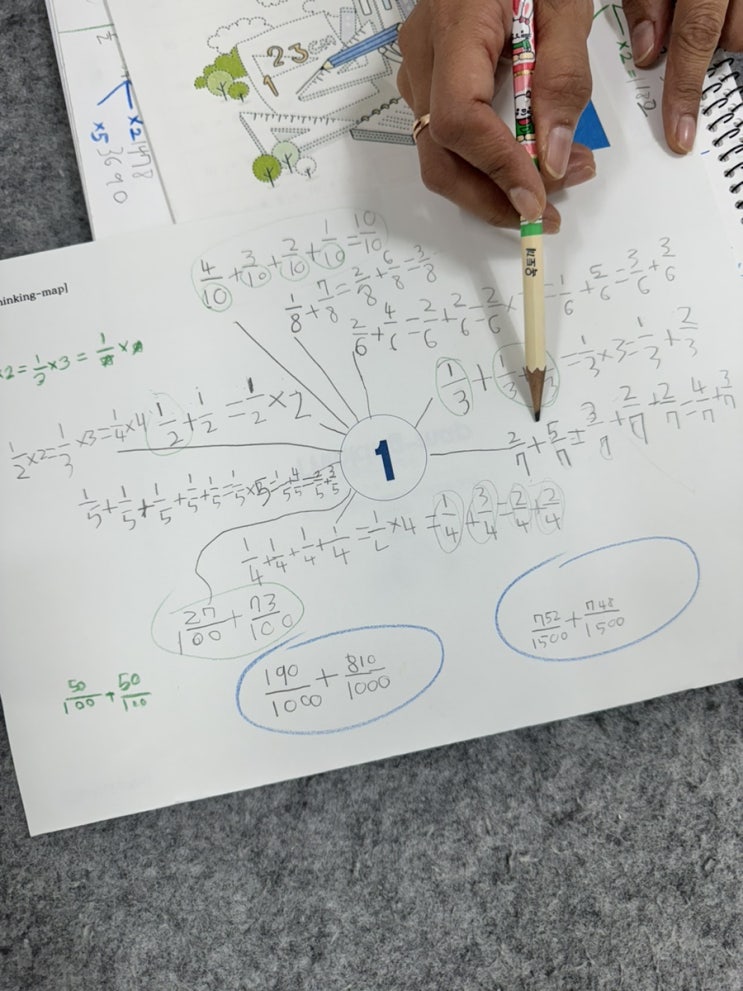 23cm
1
x2 1478
x5 3690
x2=182
hinking-map]
4/10 + 3/10 + 2/10 + 1/10 = 10/10
1/8 + 7/8 = 2/8 + 6/8 = 3/8
2/6 + 4/6 = 2/6 + 2/6 = 2/6 1/6 + 5/6 = 3/6 + 3/6
x2 = 1/2 x3 =
1/3 + 1/3 = 1/3 x 3 = 1/3 + 2/3
1/2 x2 = 1/3 x3 = 1/4 x 4 1/2 + 1/2 = 1/2 x 2
1
2/7 + 5/7 = 3/7 + 2/7 + 2/7 = 4/7 + 3/7
1/5 + 1/5 + 1/5 + 1/5 + 1/5 = 1/5 x 5 = 1/5 4/5 = 2/5 + 3/5
1/4 + 1/4 + 1/4 + 1/4 = 1/2 x 4 = 1/4 + 3/4 = 2/4 + 2/4
27/100 + 73/100
752/1500 + 748/1500
190/1000 + 810/1000
50/100 + 50/100